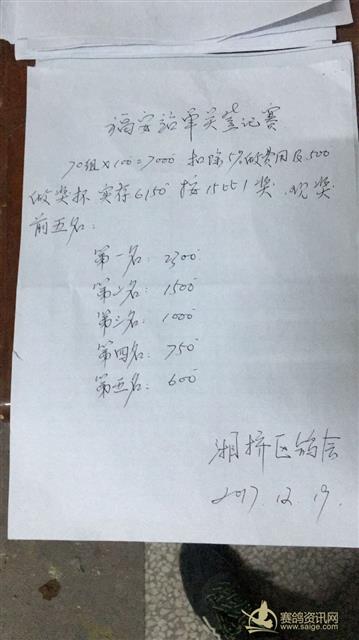 福安站单关登记赛
70组×100=7000 扣除5%做费用及500
做奖杯 实存6150 按15取1奖, 现奖
前五名:
第一名: 2300
第二名: 1500
第三名: 1000
第四名: 750
第五名: 600
湘桥区鸽会
2017.12.19.
赛鸽资讯网
www.saige.com